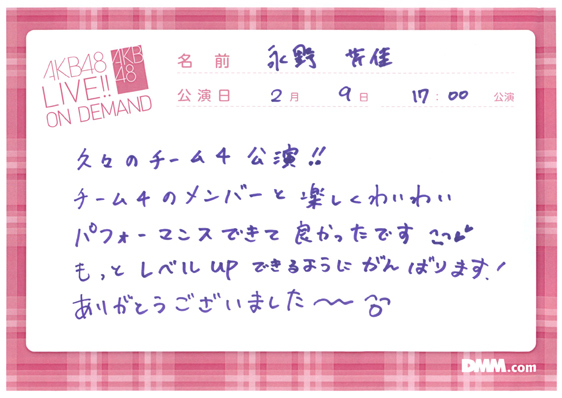 AKB48
LIVE!!
ON DEMAND
AKB
48
名前 永野 芹佳
公演日 2月 9日 17:00 公演
久々のチーム4 公演!!
チーム4のメンバーと楽しくわいわい
パフォーマンスできて良かったです
もっとレベルupできるようにがんばります!
ありがとうございました〜〜
DMM.com